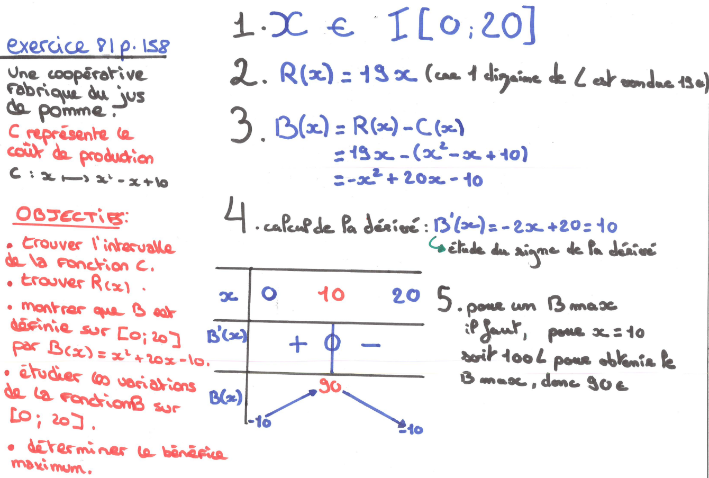 exercice 81 p.158
Une coopérative
fabrique du jus
de pomme.
C représente le
coût de production
C : x ⟼ x² - x + 10
OBJECTIFS:
• trouver l'intervalle
de la fonction C.
• trouver R(x).
• montrer que B est
définie sur [0;20]
par B(x) = x² + 20x - 10.
• étudier les variations
de la fonction B sur
[0; 20].
• déterminer le bénéfice
maximum.
1. x € I[0;20]
2. R(x) = 19x (car 1 dizaine de L est vendue 19€)
3. B(x) = R(x) - C(x)
= 19x - (x² - x + 10)
= -x² + 20x - 10
4. calcul de la dérivé : B'(x) = -2x + 20 = 10
↳ étude du signe de la dérivé
x 0 10 20
B'(x) + 0 -
B(x) -10 90 -10
5. pour un B max
il faut, pour x = 10
soit 100L pour obtenir le
B max, donc 90€